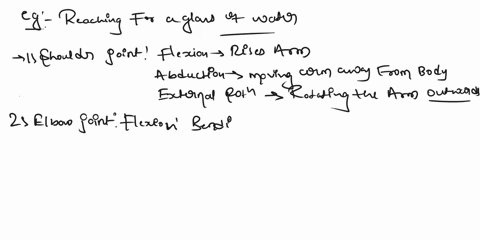 eg:- Reaching For a glass of water
→ 1) Shoulder joint: Flexion → Rises Arm
Abduction → moving arm away From Body
External Rotn → Rotating the Arm outwards
2) Elbow joint: Flexion: Bendi